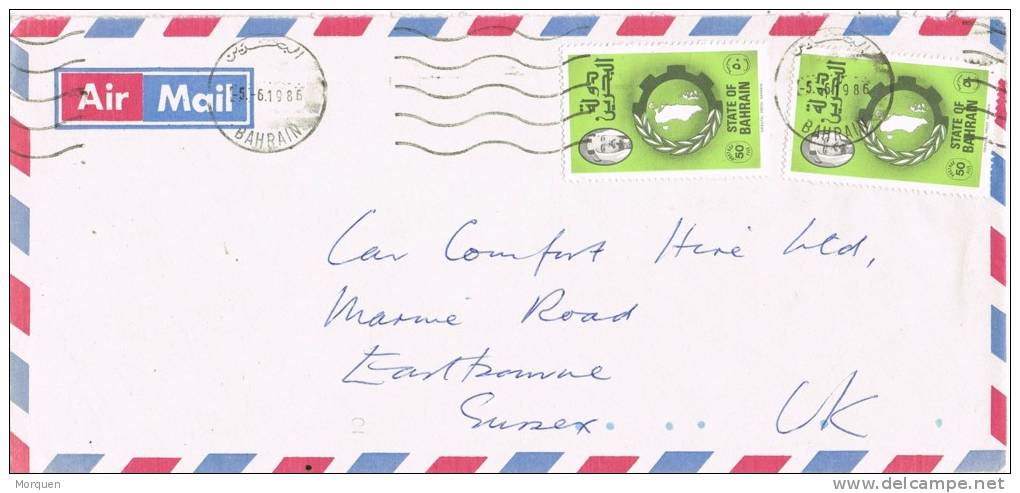 Air Mail
البحرين
-5.-6.1986
BAHRAIN
دولة البحرين
٥٠
STATE OF BAHRAIN
50
البحرين
-5.-6.1986
BAHRAIN
دولة البحرين
٥٠
STATE OF BAHRAIN
50
Car Comfort Hire Ltd,
Marine Road
Eastbourne
Sussex UK
Morquen
delcampe.net